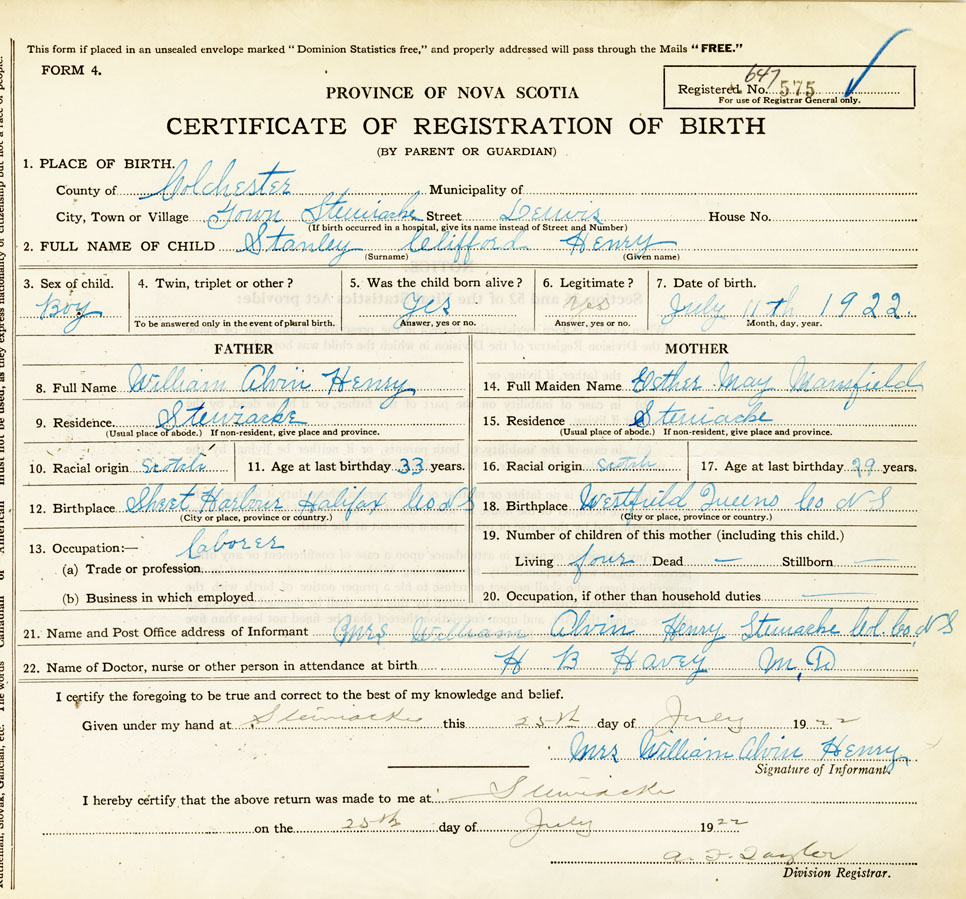 This form if placed in an unsealed envelope marked "Dominion Statistics free," and properly addressed will pass through the Mails "FREE."
FORM 4.
647
Registered No. 575
For use of Registrar General only.
PROVINCE OF NOVA SCOTIA
CERTIFICATE OF REGISTRATION OF BIRTH
(BY PARENT OR GUARDIAN)
1. PLACE OF BIRTH.
County of Colchester Municipality of
City, Town or Village Town Stewiacke Street Lewis House No.
(If birth occurred in a hospital, give its name instead of Street and Number)
2. FULL NAME OF CHILD Stanley Clifford Henry
(Surname) (Given name)
3. Sex of child. 4. Twin, triplet or other? 5. Was the child born alive? 6. Legitimate? 7. Date of birth.
Boy Yes yes July 11th 1922
To be answered only in the event of plural birth. Answer, yes or no. Answer, yes or no. Month, day, year.
FATHER MOTHER
8. Full Name William Alvin Henry 14. Full Maiden Name Esther May Mansfield
9. Residence. Stewiacke 15. Residence Stewiacke
(Usual place of abode.) If non-resident, give place and province. (Usual place of abode.) If non-resident, give place and province.
10. Racial origin Scotch 11. Age at last birthday 33 years. 16. Racial origin Scotch 17. Age at last birthday 29 years.
12. Birthplace Sheet Harbour Halifax Co N S 18. Birthplace Westfield Queens Co N S
(City or place, province or country.) (City or place, province or country.)
13. Occupation:— laborer 19. Number of children of this mother (including this child.)
(a) Trade or profession Living four Dead — Stillborn —
(b) Business in which employed 20. Occupation, if other than household duties —
21. Name and Post Office address of Informant Mrs William Alvin Henry Stewiacke Col. Co. N S
22. Name of Doctor, nurse or other person in attendance at birth H B Havey M.D
I certify the foregoing to be true and correct to the best of my knowledge and belief.
Given under my hand at Stewiacke this 25th day of July 1922
Mrs William Alvin Henry
Signature of Informant.
I hereby certify that the above return was made to me at Stewiacke
on the 25th day of July 1922
A. F. Taylor
Division Registrar.